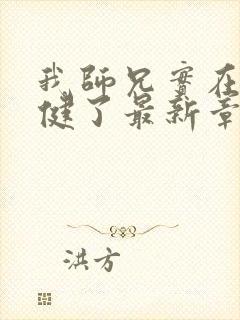 我师兄实在
健了最新章
洪方